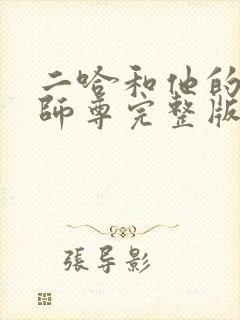 二哈和他的
師尊完整版
張导影